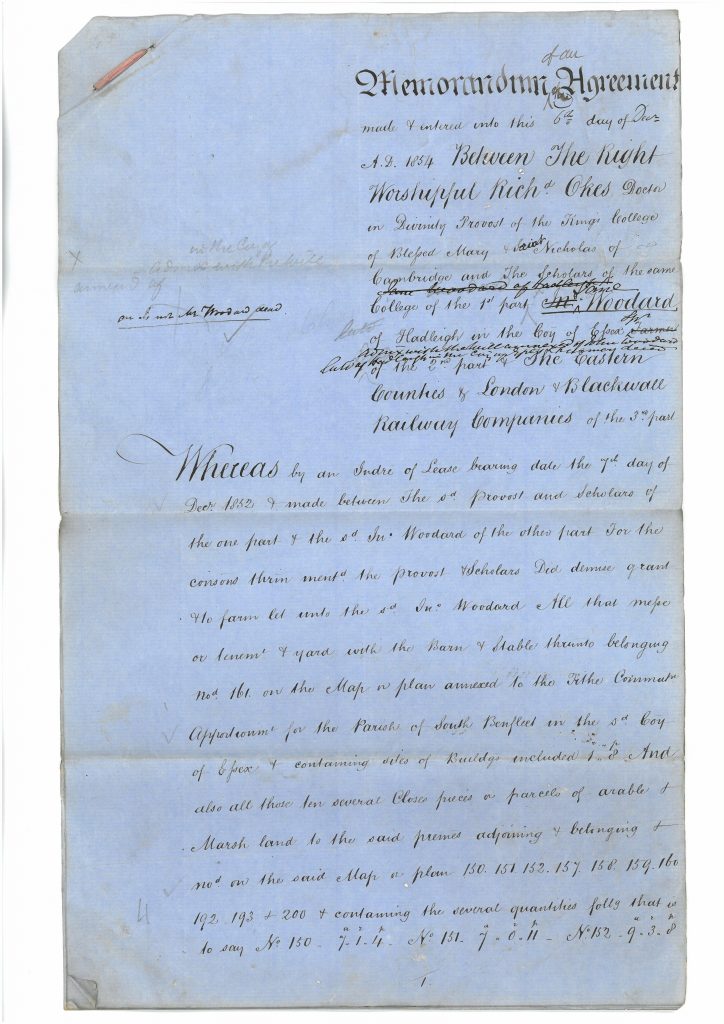 of an
Memorandum of Agreement
made & entered into this 6th day of Decr
A.D. 1854 Between The Right
Worshipful Richd Okes Doctor
in Divinity Provost of the Kings College
of Blessed Mary & Saint Nicholas of
Cambridge and The Scholars of the same
Jane Woodard of Hadleigh
College of the 1st part Jno Jane Woodard
of Hadleigh in the Coy of Essex Farmer
of the 2nd part & The Eastern
Counties & London & Blackwall
Railway Companies of the 3rd part
in the Coy
admix with the will
annexed of
Mr Woodard dead
Whereas by an Indre of Lease bearing date the 7th day of
Decr 1852 & made between The sd Provost and Scholars of
the one part & the sd Jno Woodard of the other part For the
consons thrin mentd the Provost & Scholars Did demise grant
& to farm let unto the sd Jno Woodard All that messe
or tenemt & yard with the Barn & Stable thrunto belonging
nod 161. on the Map or plan annexed to the Tithe Commutn
Apportionmt for the Parish of South Benfleet in the sd Coy
of Essex & containing sites of Buildgs included 1 " 8 And
also all those ten several Closes pieces or parcels of arable &
Marsh land to the said premes adjoining & belonging &
nod on the said Map or plan 150. 151. 152. 157. 158. 159. 160
192. 193 & 200 & containing the several quantities follg that is
to say No 150 - 7a-1r-4p No 151 - 7a-0r-11p - No 152 - 9a-3r-8p
4
1.